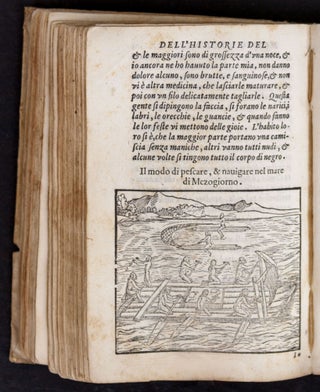 DELL'HISTORIE DEL
& le maggiori sono di grossezza d'vna noce, &
io ancora ne ho hauuto la parte mia, non danno
dolore alcuno, sono brutte, e sanguinose, & non
vi è altra medicina, che lasciarle maturare, &
poi con vn filo delicatamente tagliarle. Questa
gente si dipingono la faccia, si forano le narici, i
labri, le orecchie, le guancie, & quando fanno
le lor feste vi mettono delle gioie. L'habito lo-
ro si è, che la maggior parte portano vna cami-
scia senza maniche, altri vanno tutti nudi, &
alcune volte si tingono tutto il corpo di negro.
Il modo di pescare, & nauigare nel mare
di Mezogiorno.